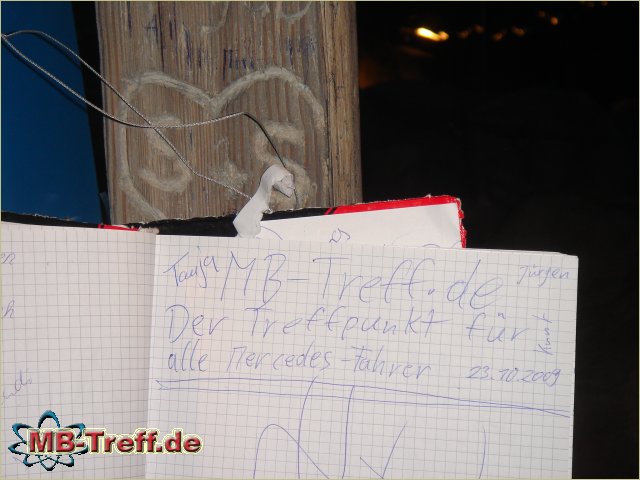 Tanja MB-Treff.de Jürgen
Der Treffpunkt für
alle Mercedes-Fahrer 23.10.2009
MB-Treff.de